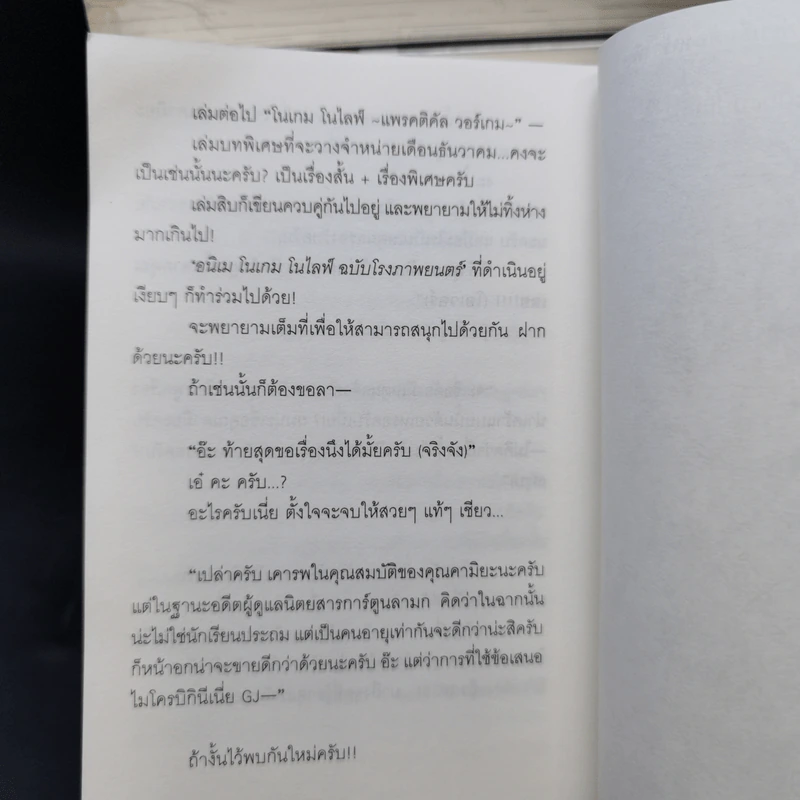 เล่มต่อไป “โนเกม โนไลฟ์ ~แพรคติคัล วอร์เกม~” —
เล่มบทพิเศษที่จะวางจำหน่ายเดือนธันวาคม...คงจะ
เป็นเช่นนั้นนะครับ? เป็นเรื่องสั้น + เรื่องพิเศษครับ
เล่มสิบก็เขียนควบคู่กันไปอยู่ และพยายามให้ไม่ทิ้งห่าง
มากเกินไป!
‘อนิเม โนเกม โนไลฟ์ ฉบับโรงภาพยนตร์’ ที่ดำเนินอยู่
เงียบๆ ก็ทำร่วมไปด้วย!
จะพยายามเต็มที่เพื่อให้สามารถสนุกไปด้วยกัน ฝาก
ด้วยนะครับ!!
ถ้าเช่นนั้นก็ต้องขอลา—
“อ๊ะ ท้ายสุดขอเรื่องนึงได้มั้ยครับ (จริงจัง)”
เอ๋ คะ ครับ...?
อะไรครับเนี่ย ตั้งใจจะจบให้สวยๆ แท้ๆ เชียว...
“เปล่าครับ เคารพในคุณสมบัติของคุณคามิยะนะครับ
แต่ในฐานะอดีตผู้ดูแลนิตยสารการ์ตูนลามก คิดว่าในฉากนั้น
น่ะไม่ใช่นักเรียนประถม แต่เป็นคนอายุเท่ากันจะดีกว่าน่ะสิครับ
ก็หน้าอกน่าจะขายดีกว่าด้วยนะครับ อ๊ะ แต่ว่าการที่ใช้ข้อเสนอ
ไมโครบิกินีเนี่ย GJ—”
ถ้างั้นไว้พบกันใหม่ครับ!!